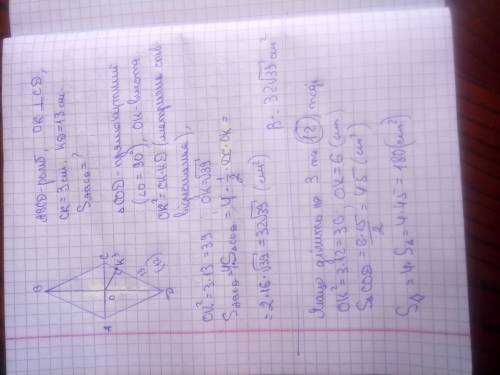 ABCD-ромб, OK ⊥ CD,
CK = 3 см, KD = 13 см
S_ABCD = ?
B
A
C
O
K
D
3
13
(12)
△COD - прямокутний
(∠O = 90°), OK - висота
OK² = CK·KD (метричні спів-
відношення),
OK² = 3·13 = 39, OK = √39
S_ABCD = 4 S_△COD = 4 · 1/2 DC · OK =
= 2·16·√39 = 32√39 (см²)
В: 32√39 см²
Якщо ділить на 3 та (12), тоді
OK² = 3·12 = 36 OK = 6 (см)
S_△COD = 6·15/2 = 45 (см²)
S_◊ = 4·S_△ = 4·45 = 180 (см²)